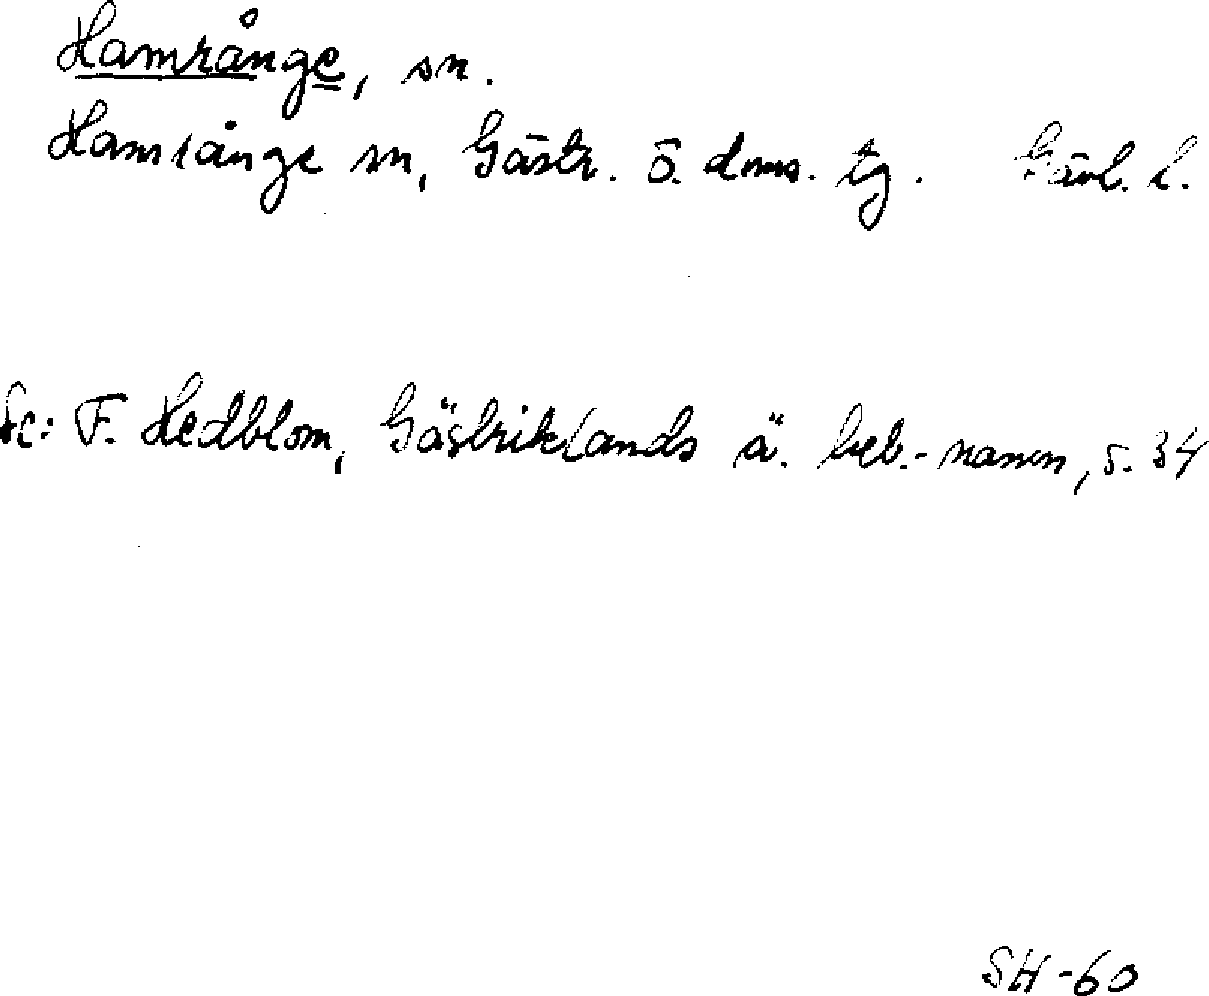 Hamrånge, sn.
Hamrånge sn, Gästr. ö. doms. tg. Gävl. l.
Se: F. Hedblom, Gästriklands ä. beb.-namn, s. 34
SH-60